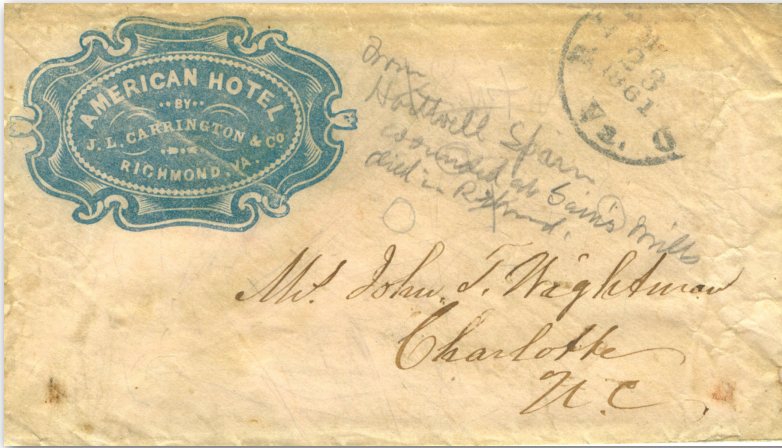 AMERICAN HOTEL
BY
J. L. CARRINGTON & Co
RICHMOND, VA.
from
Hartwell Spain
wounded at Gain's Mills
died in Richmond.
23
1861
Va.
Mrs. John T. Wightman
Charlotte
N. C.